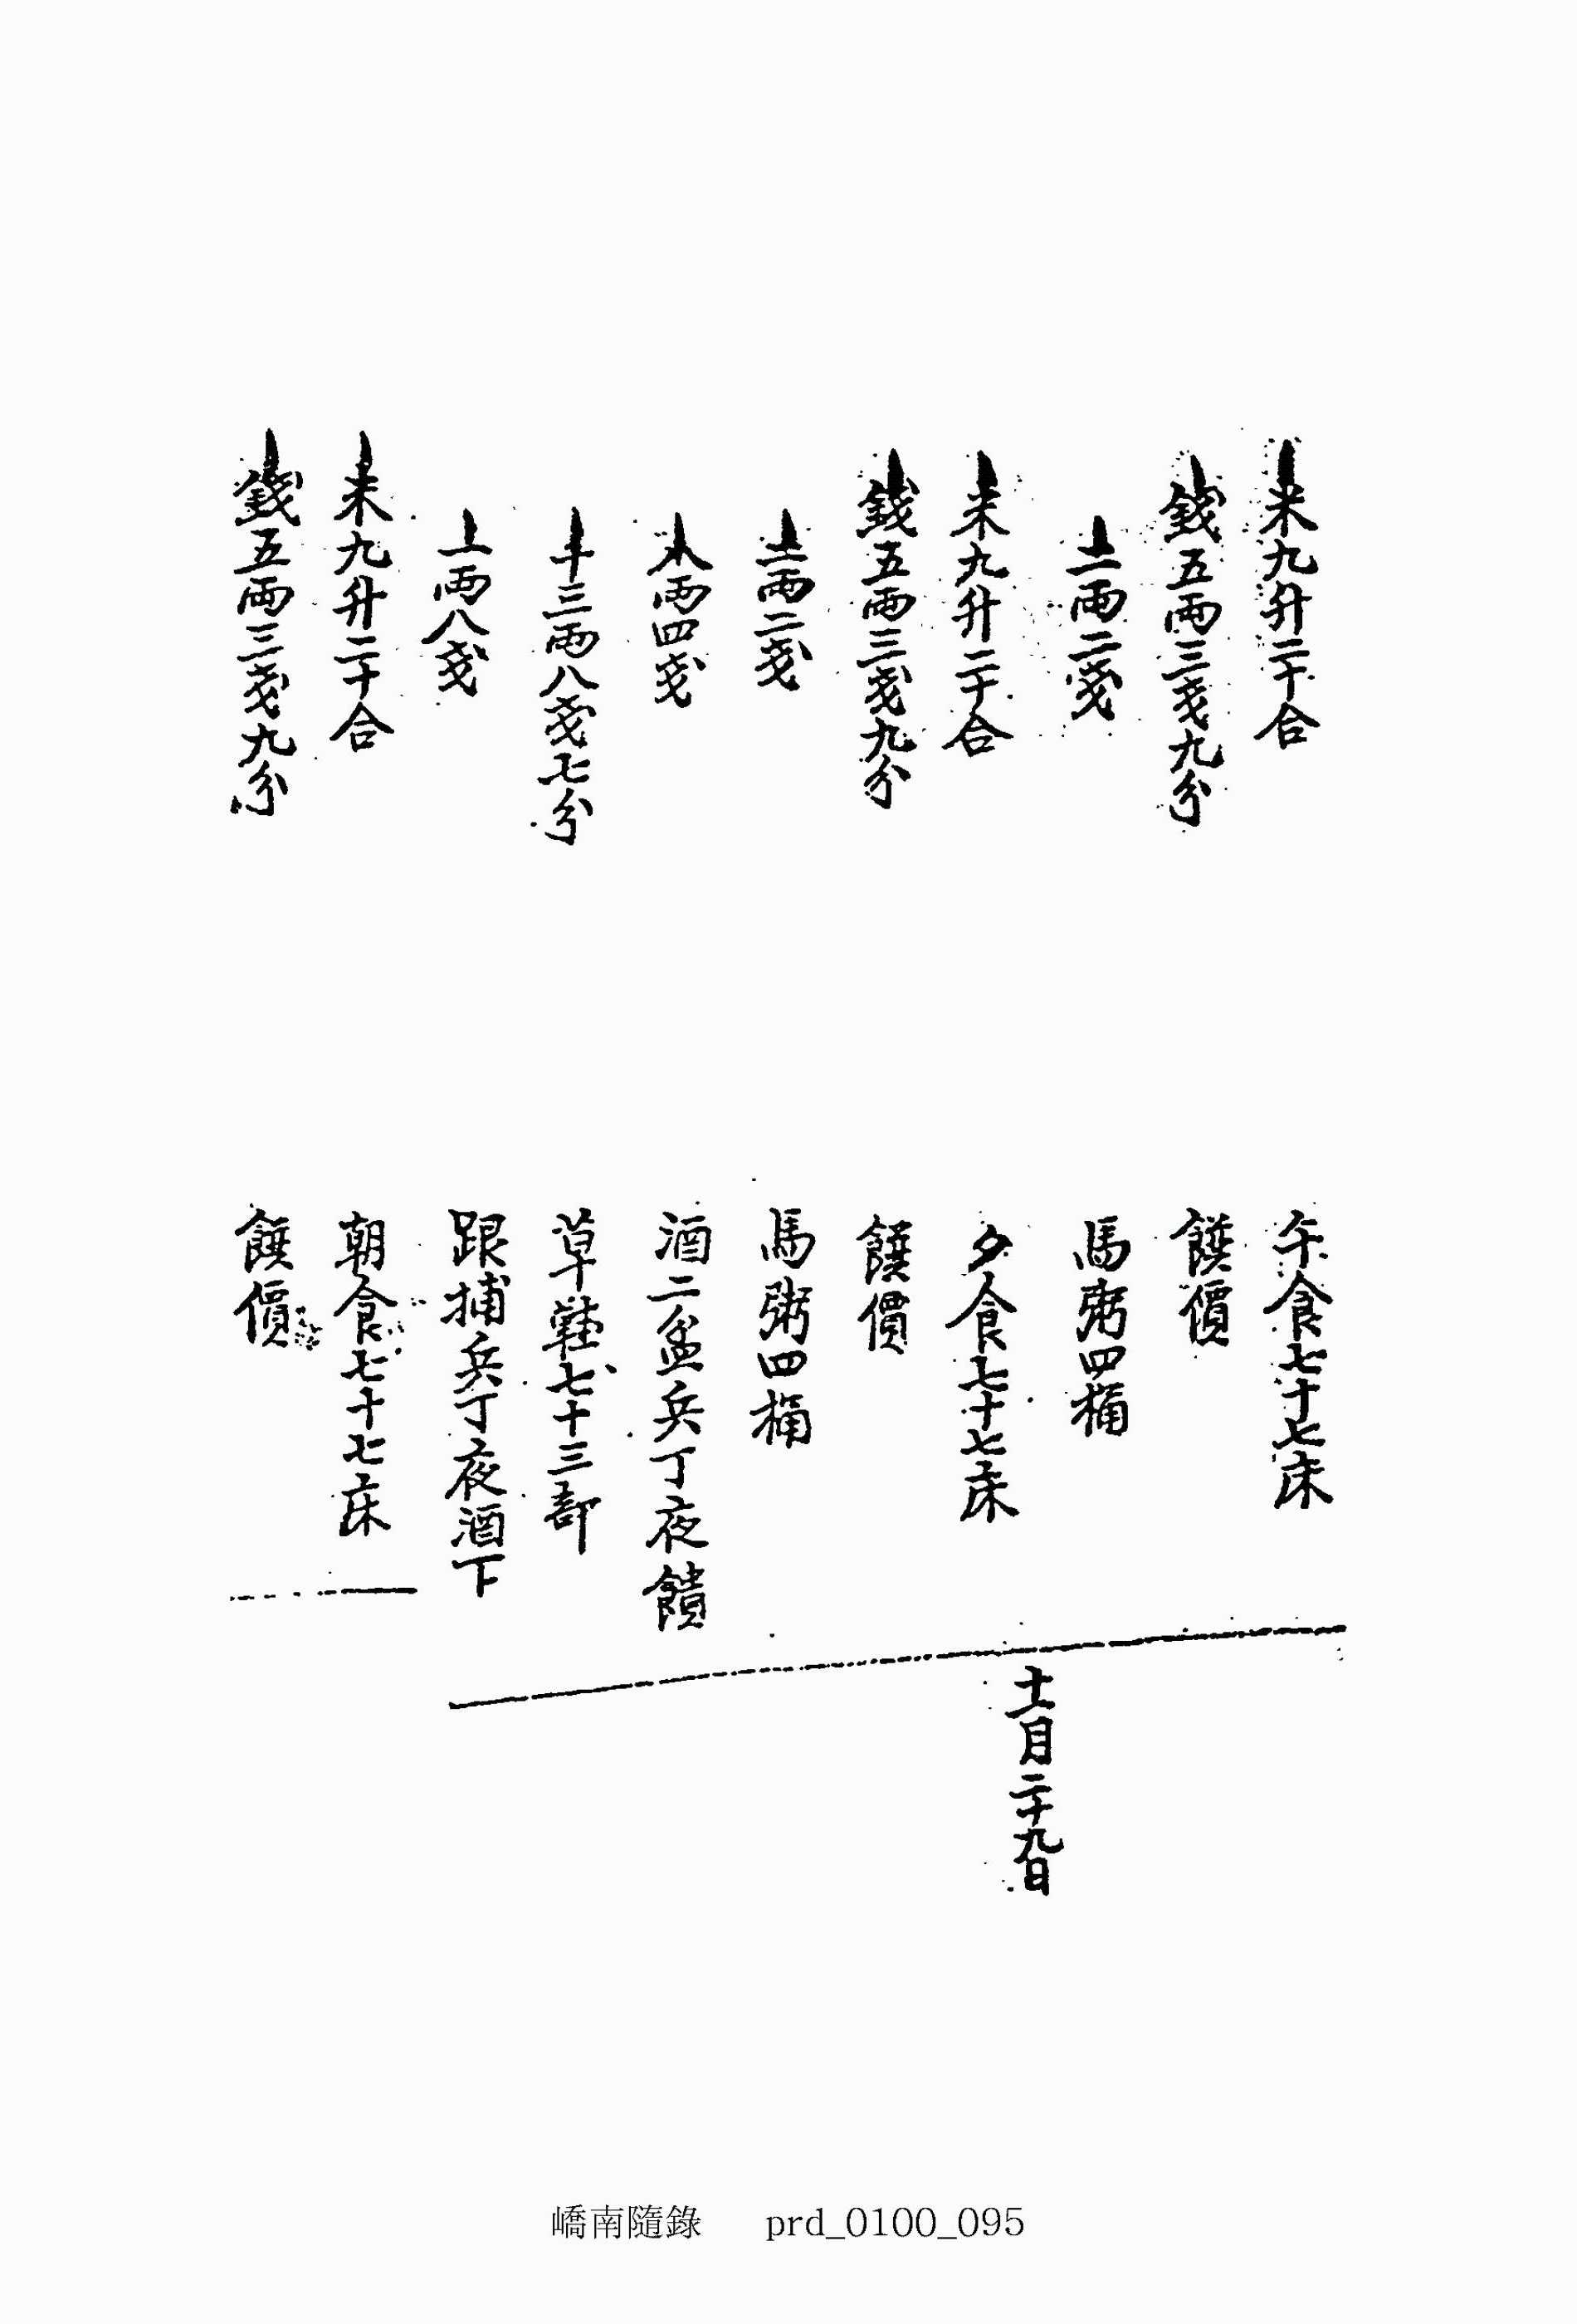 米九升二十合 午食七十七床
錢五兩三戔九分 饌價
二兩二戔 馬粥四桶
米九升二十合 夕食七十七床
十一月二十九日
錢五兩三戔九分 饌價
二兩二戔 馬粥四桶
八兩四戔 酒二盆兵丁夜饋
十三兩八戔七分 草鞋七十三部
二兩八戔 跟捕兵丁夜酒下
米九升二十合 朝食七十七床
錢五兩三戔九分 饌價
嶠南隨錄 prd_0100_095